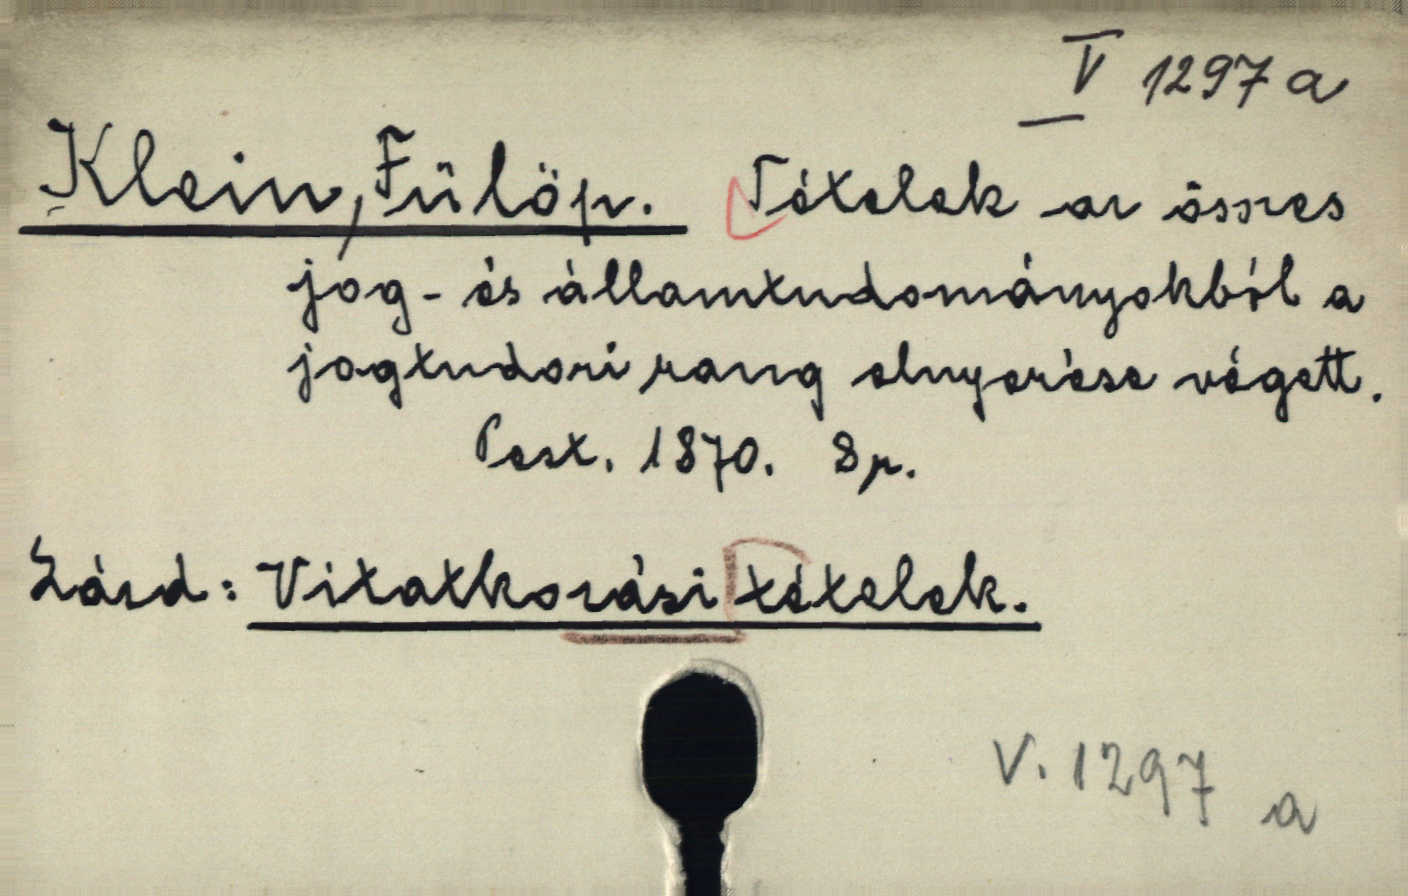 V 1297 a
Klein, Fülöp. Tételek az összes
jog- és államtudományokból a
jogtudori rang elnyerése végett.
Pest. 1870. 8 p.
Lásd: Vitatkozási tételek.
V. 1297 a